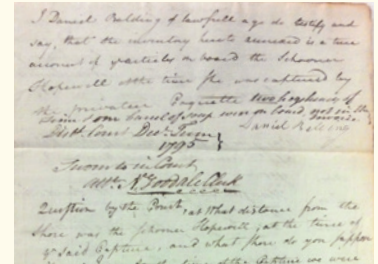 I Daniel Balding of lawfull age do testify and
say, that the inventory hereto annexed is a true
account of on board the Schooner
Hopewell at the time she was captured by
the privateer two hogsheads of
one barrel of soap were on board not in the
Invoice
Daniel
Dist. Court Decr. Term
1795
Sworn to in Court
Att. N. Goodale Clerk
Question by the Court, at what distance from the
shore was the Schooner Hopewell, at the time of
said Capture, and what shore do you suppose
the time of the Capture we were